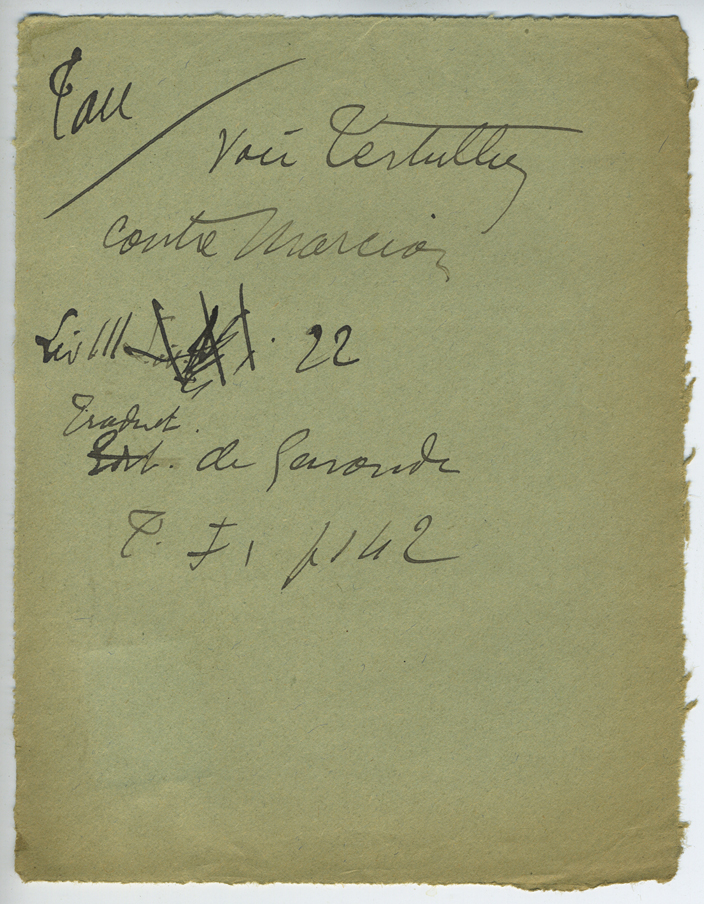 Tau
voir Tertullien
contre Marcion
Liv III 22
Traduct.
de Genoude
T. I, p 142